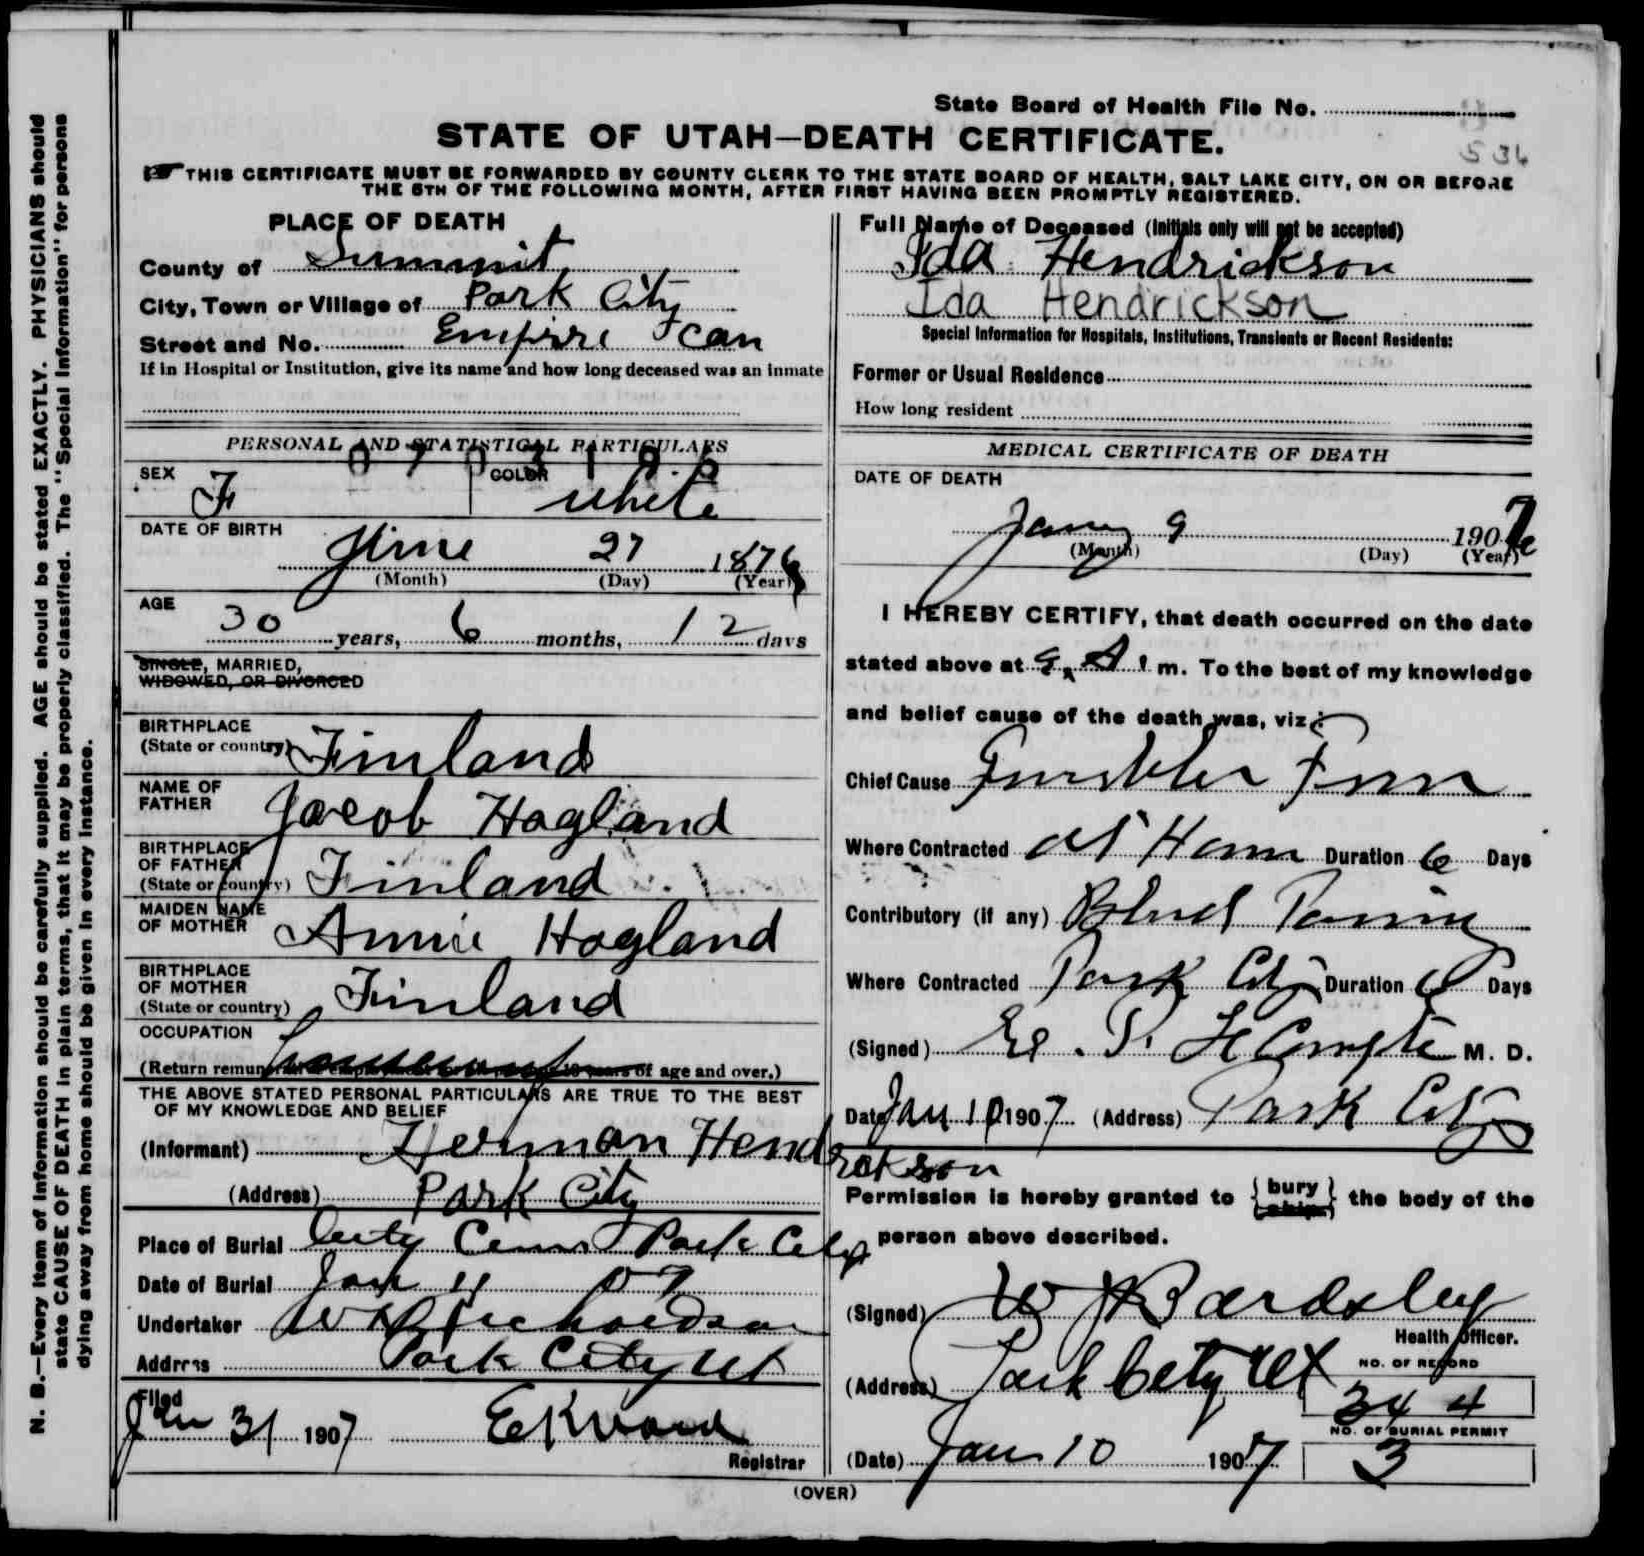 State Board of Health File No.
536
STATE OF UTAH—DEATH CERTIFICATE.
THIS CERTIFICATE MUST BE FORWARDED BY COUNTY CLERK TO THE STATE BOARD OF HEALTH, SALT LAKE CITY, ON OR BEFORE
THE 5TH OF THE FOLLOWING MONTH, AFTER FIRST HAVING BEEN PROMPTLY REGISTERED.
N. B.—Every item of information should be carefully supplied. AGE should be stated EXACTLY. PHYSICIANS should
state CAUSE OF DEATH in plain terms, that it may be properly classified. The "Special Information" for persons
dying away from home should be given in every instance.
PLACE OF DEATH
County of Summit
City, Town or Village of Park City
Street and No. Empire Can
If in Hospital or Institution, give its name and how long deceased was an inmate
PERSONAL AND STATISTICAL PARTICULARS
SEX F COLOR white
DATE OF BIRTH June 27 1876
(Month) (Day) (Year)
AGE
30 years, 6 months, 12 days
SINGLE, MARRIED,
WIDOWED, OR DIVORCED
BIRTHPLACE
(State or country) Finland
NAME OF
FATHER Jacob Hogland
BIRTHPLACE
OF FATHER
(State or country) Finland
MAIDEN NAME
OF MOTHER Annie Hogland
BIRTHPLACE
OF MOTHER
(State or country) Finland
OCCUPATION
(Return remun of age and over.)
THE ABOVE STATED PERSONAL PARTICULARS ARE TRUE TO THE BEST
OF MY KNOWLEDGE AND BELIEF
(Informant) Herman Hendrickson
(Address) Park City
Place of Burial City Cem Park City
Date of Burial Jan 11 07
Undertaker W Richardson
Address Park City Ut
Filed
Jan 31 1907
Registrar
Full Name of Deceased (Initials only will not be accepted)
Ida Hendrickson
Ida Hendrickson
Special Information for Hospitals, Institutions, Transients or Recent Residents:
Former or Usual Residence
How long resident
MEDICAL CERTIFICATE OF DEATH
DATE OF DEATH
9 1907
(Month) (Day) (Year)
I HEREBY CERTIFY, that death occurred on the date
stated above at 9 A m. To the best of my knowledge
and belief cause of the death was, viz:
Chief Cause
Where Contracted At Home Duration 6 Days
Contributory (if any) Blood
Where Contracted Park City Duration 6 Days
(Signed) LeCompte M. D.
Date Jan 10 1907 (Address) Park City
Permission is hereby granted to {bury ship} the body of the
person above described.
(Signed) W J Bardsley
Health Officer.
(Address) Park City Ut
NO. OF RECORD
344
NO. OF BURIAL PERMIT
3
(Date) Jan 10 1907
(OVER)